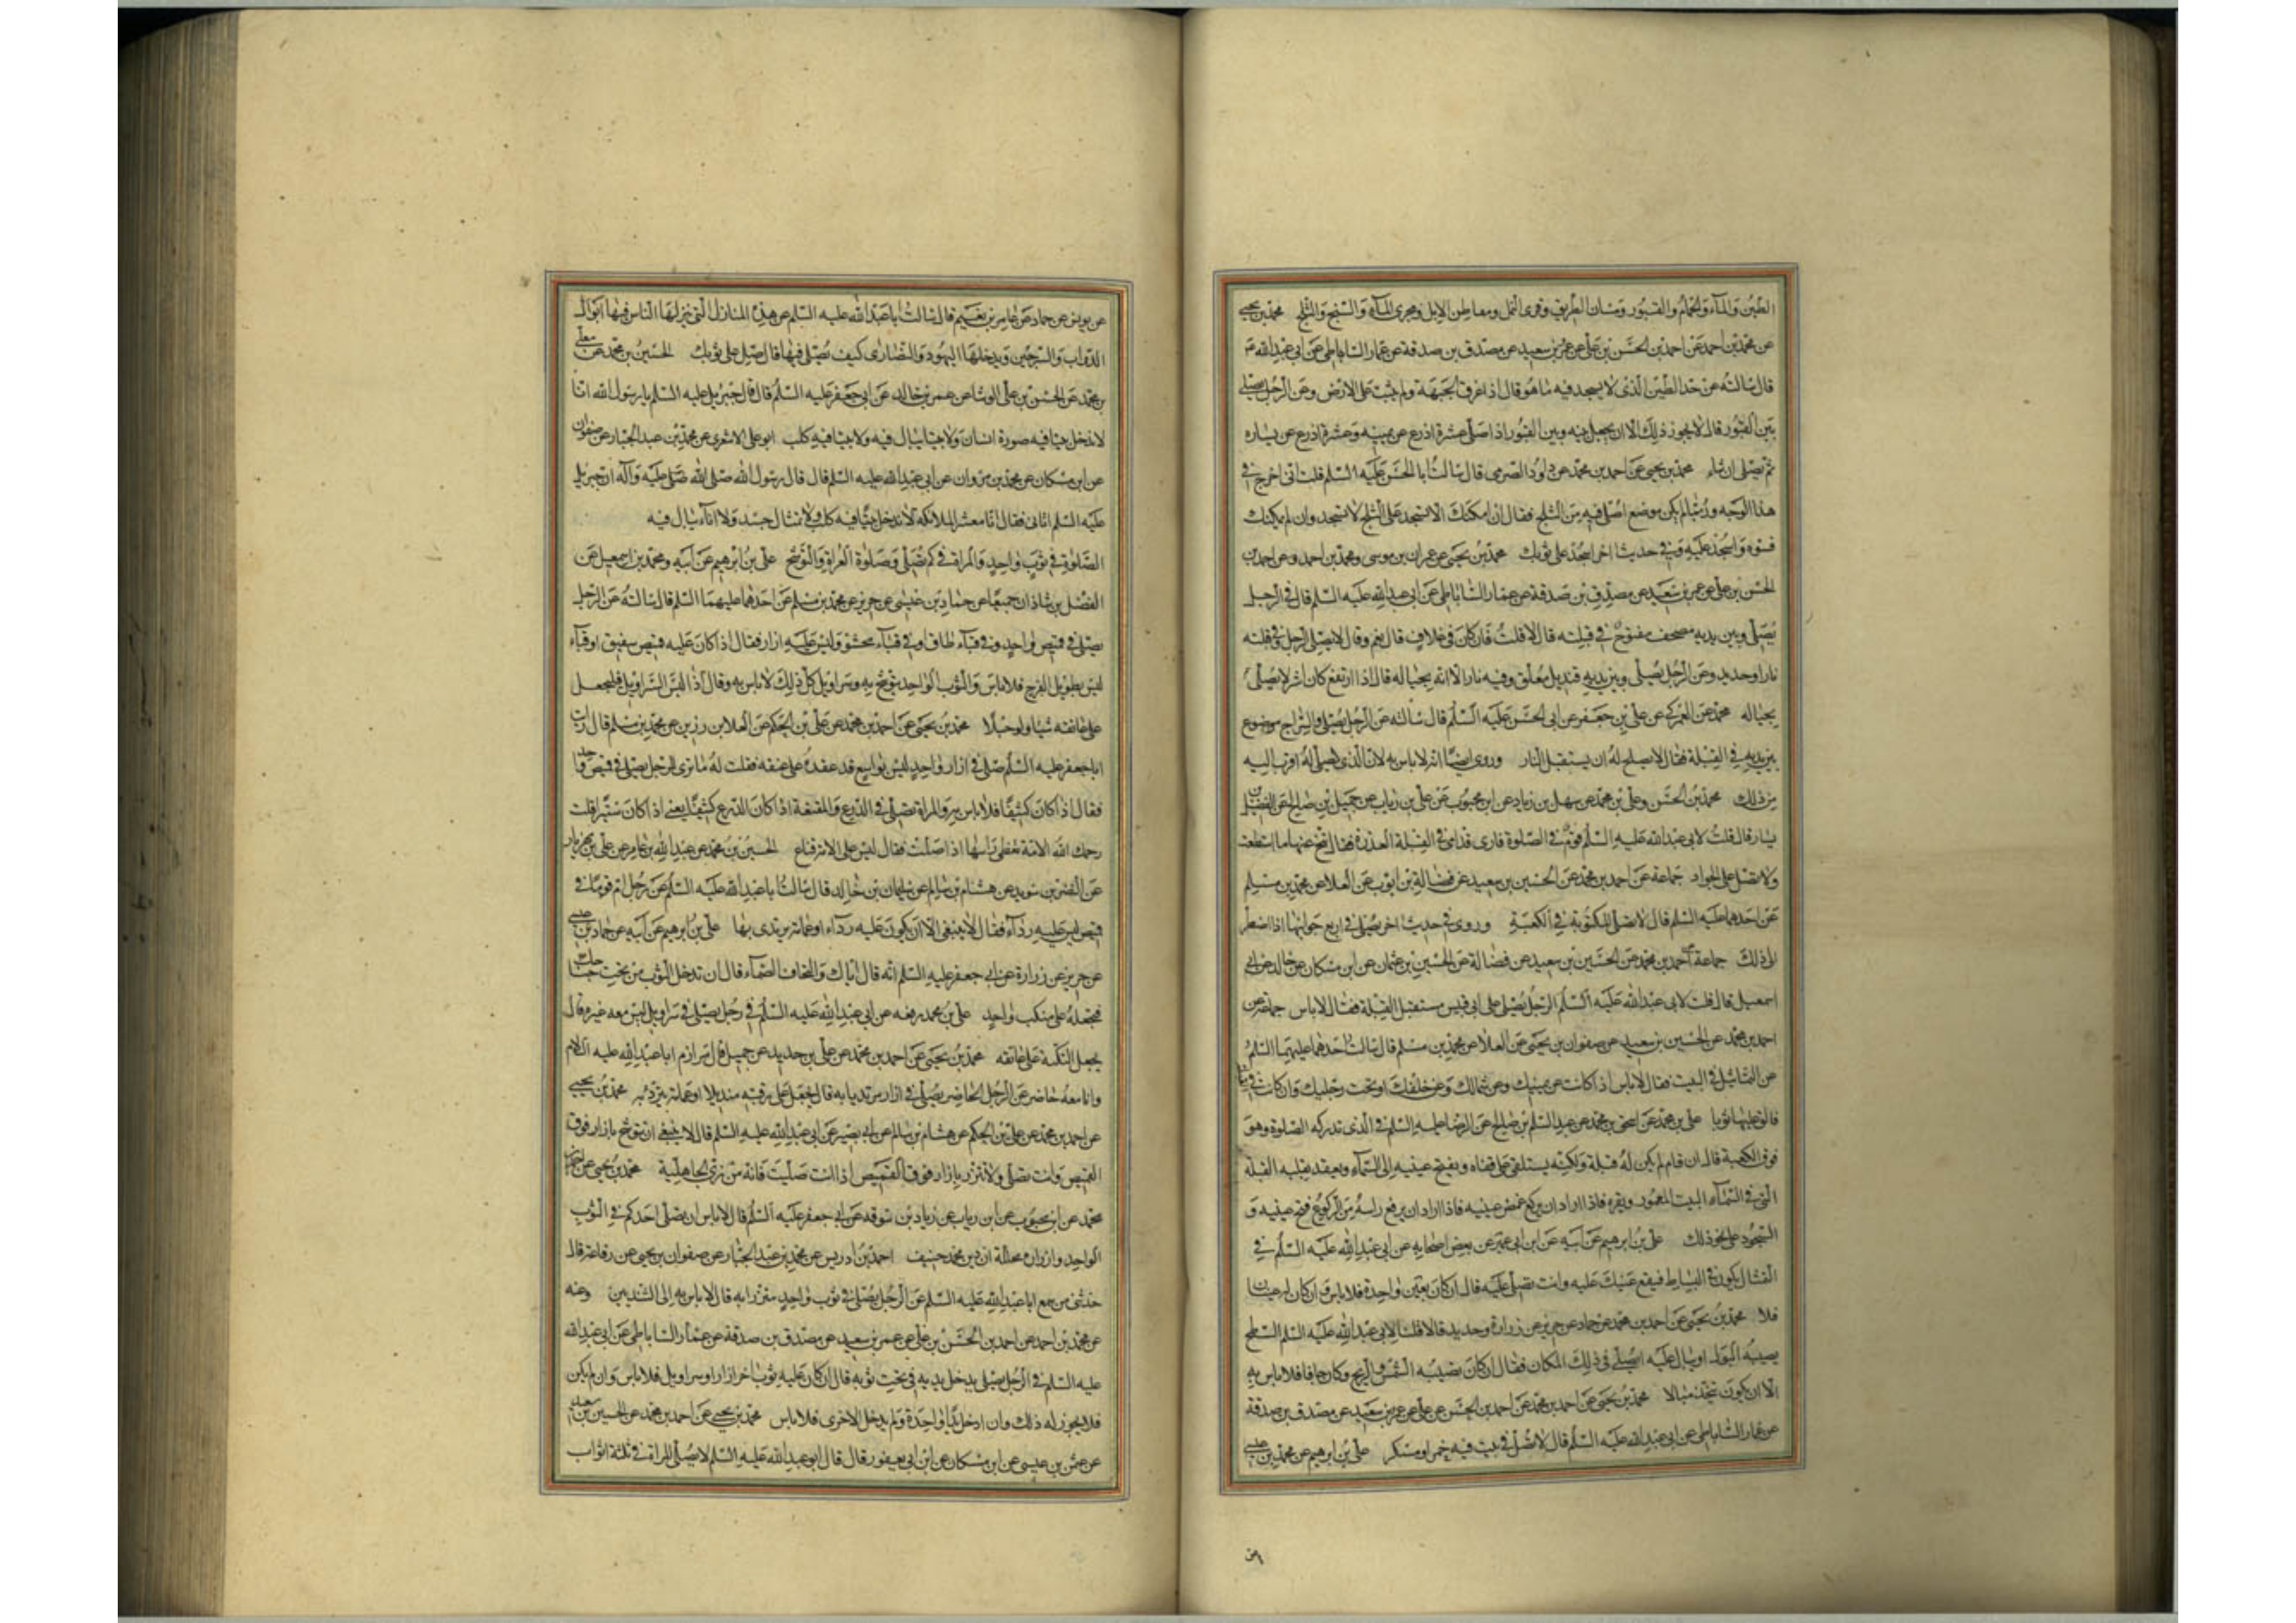 الطين والماء والحمام والقبور ومسان الطريق وقرى النمل ومعاطن الابل ومجرى الماء والسبخ والثلج محمد بن يحيى
عن محمد بن احمد عن احمد بن الحسن بن علي عن عمرو بن سعيد عن مصدق بن صدقة عن عمار الساباطي عن ابي عبد الله ع
قال سالته عن حد الطين الذي لا يسجد فيه ما هو قال اذا غرق الجبهة ولم يثبت على الارض وعن الرجل يصلي
بين القبور قال لا يجوز ذلك الا ان يجعل بينه وبين القبور اذا صلى عشرة اذرع عن يمينه وعشرة اذرع عن يساره
ثم يصلي ان شاء محمد بن يحيى عن احمد بن محمد عن داود الصرمي قال سالت ابا الحسن عليه السلم قلت اني اخرج في
هذا الوجه وربما لم يكن موضع اصلي فيه من الثلج فقال ان امكنك الا تسجد على الثلج لا تسجد وان لم يمكنك
فسوه واسجد عليه وفي حديث اخر اسجد على ثوبك محمد بن يحيى عن عمران بن موسى ومحمد بن احمد وعن احمد بن
الحسن بن علي عن عمرو بن سعيد عن مصدق بن صدقة عن عمار الساباطي عن ابي عبد الله عليه السلم قال في الرجل
يصلي وبين يديه مصحف مفتوح في قبلته قال لا قلت فان كان في غلاف قال نعم وقال لا يصلي الرجل وفي قبلته
نار او حديد وعن الرجل يصلي وبين يديه قنديل معلق وفيه نار الا انه بحياله قال اذا ارتفع كان اشر لا يصلي
بحياله محمد عن العمركي عن علي بن جعفر عن ابي الحسن عليه السلم قال سالته عن الرجل يصلي والسراج موضوع
بين يديه في القبلة فقال لا يصلح له ان يستقبل النار وروى ايضا انه لا باس به لان الذي يصلي له اقرب اليه
من ذلك محمد بن الحسن وعلي بن محمد عن سهل بن زياد عن ابن محبوب عن علي بن رياب عن جميل بن صالح عن الفضيل بن
يسار قال قلت لابي عبد الله عليه السلم اقوم في الصلوة فارى قدامي في القبلة العذرة فقال تنح عنها ما استطعت
ولا تصل على الجواد جماعة عن احمد بن محمد عن الحسين بن سعيد عن فضالة بن ايوب عن العلا عن محمد بن مسلم
عن احدهما عليه السلم قال لا تصلي المكتوبة في الكعبة وروى في حديث اخر يصلي في اربع جوانبها اذا اضطر
الى ذلك جماعة عن احمد بن محمد عن الحسين بن سعيد عن فضالة عن الحسين بن عثمان عن ابن مسكان عن خالد عن ابي
اسمعيل قال قلت لابي عبد الله عليه السلم الرجل يصلي على ابي قبيس مستقبل القبلة فقال لا باس جماعة عن
احمد بن محمد عن الحسين بن سعيد عن صفوان بن يحيى عن العلا عن محمد بن مسلم قال سالت احدهما عليهما السلم
عن التماثيل في البيت فقال لا باس اذا كانت عن يمينك وعن شمالك وعن خلفك او تحت رجليك وان كانت في القبلة
فالق عليها ثوبا علي بن محمد عن اسحق بن محمد عن عبد السلم بن صالح عن الرضا عليه السلم في الذي تدركه الصلوة وهو
فوق الكعبة قال ان قام لم يكن له قبلة ولكنه يستلقي على قفاه ويفتح عينيه الى السماء ويعقد بقلبه القبلة
التي في السماء البيت المعمور ويقره فاذا اراد ان يركع غمض عينيه فاذا اراد ان يرفع راسه من الركوع فتح عينيه و
السجود على نحو ذلك علي بن ابرهيم عن ابيه عن ابن ابي عمير عن بعض اصحابه عن ابي عبد الله عليه السلم في
التمثال يكون في البساط فيقع عينك عليه وانت تصلي عليه قال ان كان بعين واحدة فلا باس وان كان له عينان
فلا محمد بن يحيى عن احمد بن محمد عن حماد عن حريز عن زرارة وحديد قالا قلنا لابي عبد الله عليه السلم السطح
يصيبه البول او يبال عليه ايصلي في ذلك المكان فقال ان كان تصيبه الشمس والريح وكان جافا فلا باس به
الا ان يكون يتخذ مبالا محمد بن يحيى عن احمد بن محمد عن احمد بن الحسن عن علي عن عمرو بن سعيد عن مصدق بن صدقة
عن عمار الساباطي عن ابي عبد الله عليه السلم قال لا تصلي في بيت فيه خمر او مسكر علي بن ابرهيم عن محمد بن عيسى
عن يونس عن حماد عن عامر بن نعيم قال سالت ابا عبد الله عليه السلم عن هذه المنازل التي ينزلها الناس فيها ابوال
الدواب والسرجين ويدخلها اليهود والنصارى كيف نصلي فيها قال صل على ثوبك الحسين بن محمد عن معلى
بن محمد عن الحسن بن علي الوشا عن عمر بن خالد عن ابي جعفر عليه السلم قال قال جبريل عليه السلم يا رسول الله انا
لا ندخل بيتا فيه صورة انسان ولا بيتا يبال فيه ولا بيتا فيه كلب ابو علي الاشعري عن محمد بن عبد الجبار عن صفوان
عن ابن مسكان عن محمد بن مروان عن ابي عبد الله عليه السلم قال قال رسول الله صلى الله صلى عليه واله ان جبريل
عليه السلم اتاني فقال انا معشر الملائكة لا ندخل بيتا فيه كلب ولا تمثال جسد ولا اناء يبال فيه
الصلوة في ثوب واحد والمراة في كم تصلي وصلوة العراة والتوشح علي بن ابرهيم عن ابيه ومحمد بن اسمعيل عن
الفضل بن شاذان جميعا عن حماد بن عيسى عن حريز عن محمد بن مسلم عن احدهما عليهما السلم قال سالته عن الرجل
يصلي في قميص واحد وفي قباء طاق او في قباء محشو وليس عليه ازار فقال اذا كان عليه قميص سفيق او قباء
ليس بطويل الفرج فلا باس والثوب الواحد يتوشح به وسراويل كل ذلك لا باس به وقال اذا لبس السراويل فليجعل
على عاتقه شيئا ولو حبلا محمد بن يحيى عن احمد بن محمد عن علي بن الحكم عن العلا بن رزين عن محمد بن مسلم قال رايت
ابا جعفر عليه السلم صلى في ازار واحد ليس بواسع قد عقده على عنقه فقلت له ما ترى للرجل يصلي في قميص واحد
فقال اذا كان كثيفا فلا باس به والمراة تصلي في الدرع والمقنعة اذا كان الدرع كثيفا يعني اذا كان ستيرا قلت
رحمك الله الامة تغطي راسها اذا صلت فقال ليس على الامة قناع الحسين بن محمد عن عبد الله بن عامر عن علي بن مهزيار
عن النضر بن سويد عن هشام بن سالم عن سليمان بن خالد قال سالت ابا عبد الله عليه السلم عن رجل ام قوما في
قميص ليس عليه رداء فقال لا ينبغي الا ان يكون عليه رداء او عمامة يرتدي بها علي بن ابرهيم عن ابيه عن حماد بن عيسى
عن حريز عن زرارة عن ابي جعفر عليه السلم انه قال اياك والتحاف الصماء قال ان تدخل الثوب من تحت جناحك
فتجعله على منكب واحد علي بن محمد رفعه عن ابي عبد الله عليه السلم في رجل يصلي في سراويل ليس معه غيره قال
يجعل التكة على عاتقه محمد بن يحيى عن احمد بن محمد عن علي بن حديد عن جميل قال مرازم ابا عبد الله عليه السلام
وانا معه حاضر عن الرجل الحاضر يصلي في ازار مرتديا به قال يجعل على رقبته منديلا او عمامة يتردى به محمد بن يحيى
عن احمد بن محمد عن علي بن الحكم عن هشام بن سالم عن ابي بصير عن ابي عبد الله عليه السلم قال لا ينبغي ان تتوشح بازار فوق
القميص وانت تصلي ولا تتزر بازار فوق القميص اذا انت صليت فانه من زي الجاهلية محمد بن يحيى عن احمد بن
محمد عن ابن محبوب عن ابن رياب عن زياد بن سوقه عن ابي جعفر عليه السلم قال لا باس ان يصلي احدكم في الثوب
الواحد وازراره محللة ان دين محمد حنيف احمد بن ادريس عن محمد بن عبد الجبار عن صفوان بن يحيى عن رفاعة قال
حدثني من سمع ابا عبد الله عليه السلم عن الرجل يصلي في ثوب واحد متزرا به قال لا باس به الى الثديين وعنه
عن محمد بن احمد عن احمد بن الحسن بن علي عن عمرو بن سعيد عن مصدق بن صدقة عن عمار الساباطي عن ابي عبد الله
عليه السلم في الرجل يصلي يدخل يديه في تحت ثوبه قال ان كان عليه ثوب اخر ازار او سراويل فلا باس وان لم يكن
فلا يجوز له ذلك وان ادخل يدا واحدة ولم يدخل الاخرى فلا باس محمد بن يحيى عن احمد بن محمد عن الحسين بن سعيد
عن عثمن بن عيسى عن ابن مسكان عن ابن ابي يعفور قال قال ابو عبد الله عليه السلم لا تصلي المراة في ثلثة اثواب